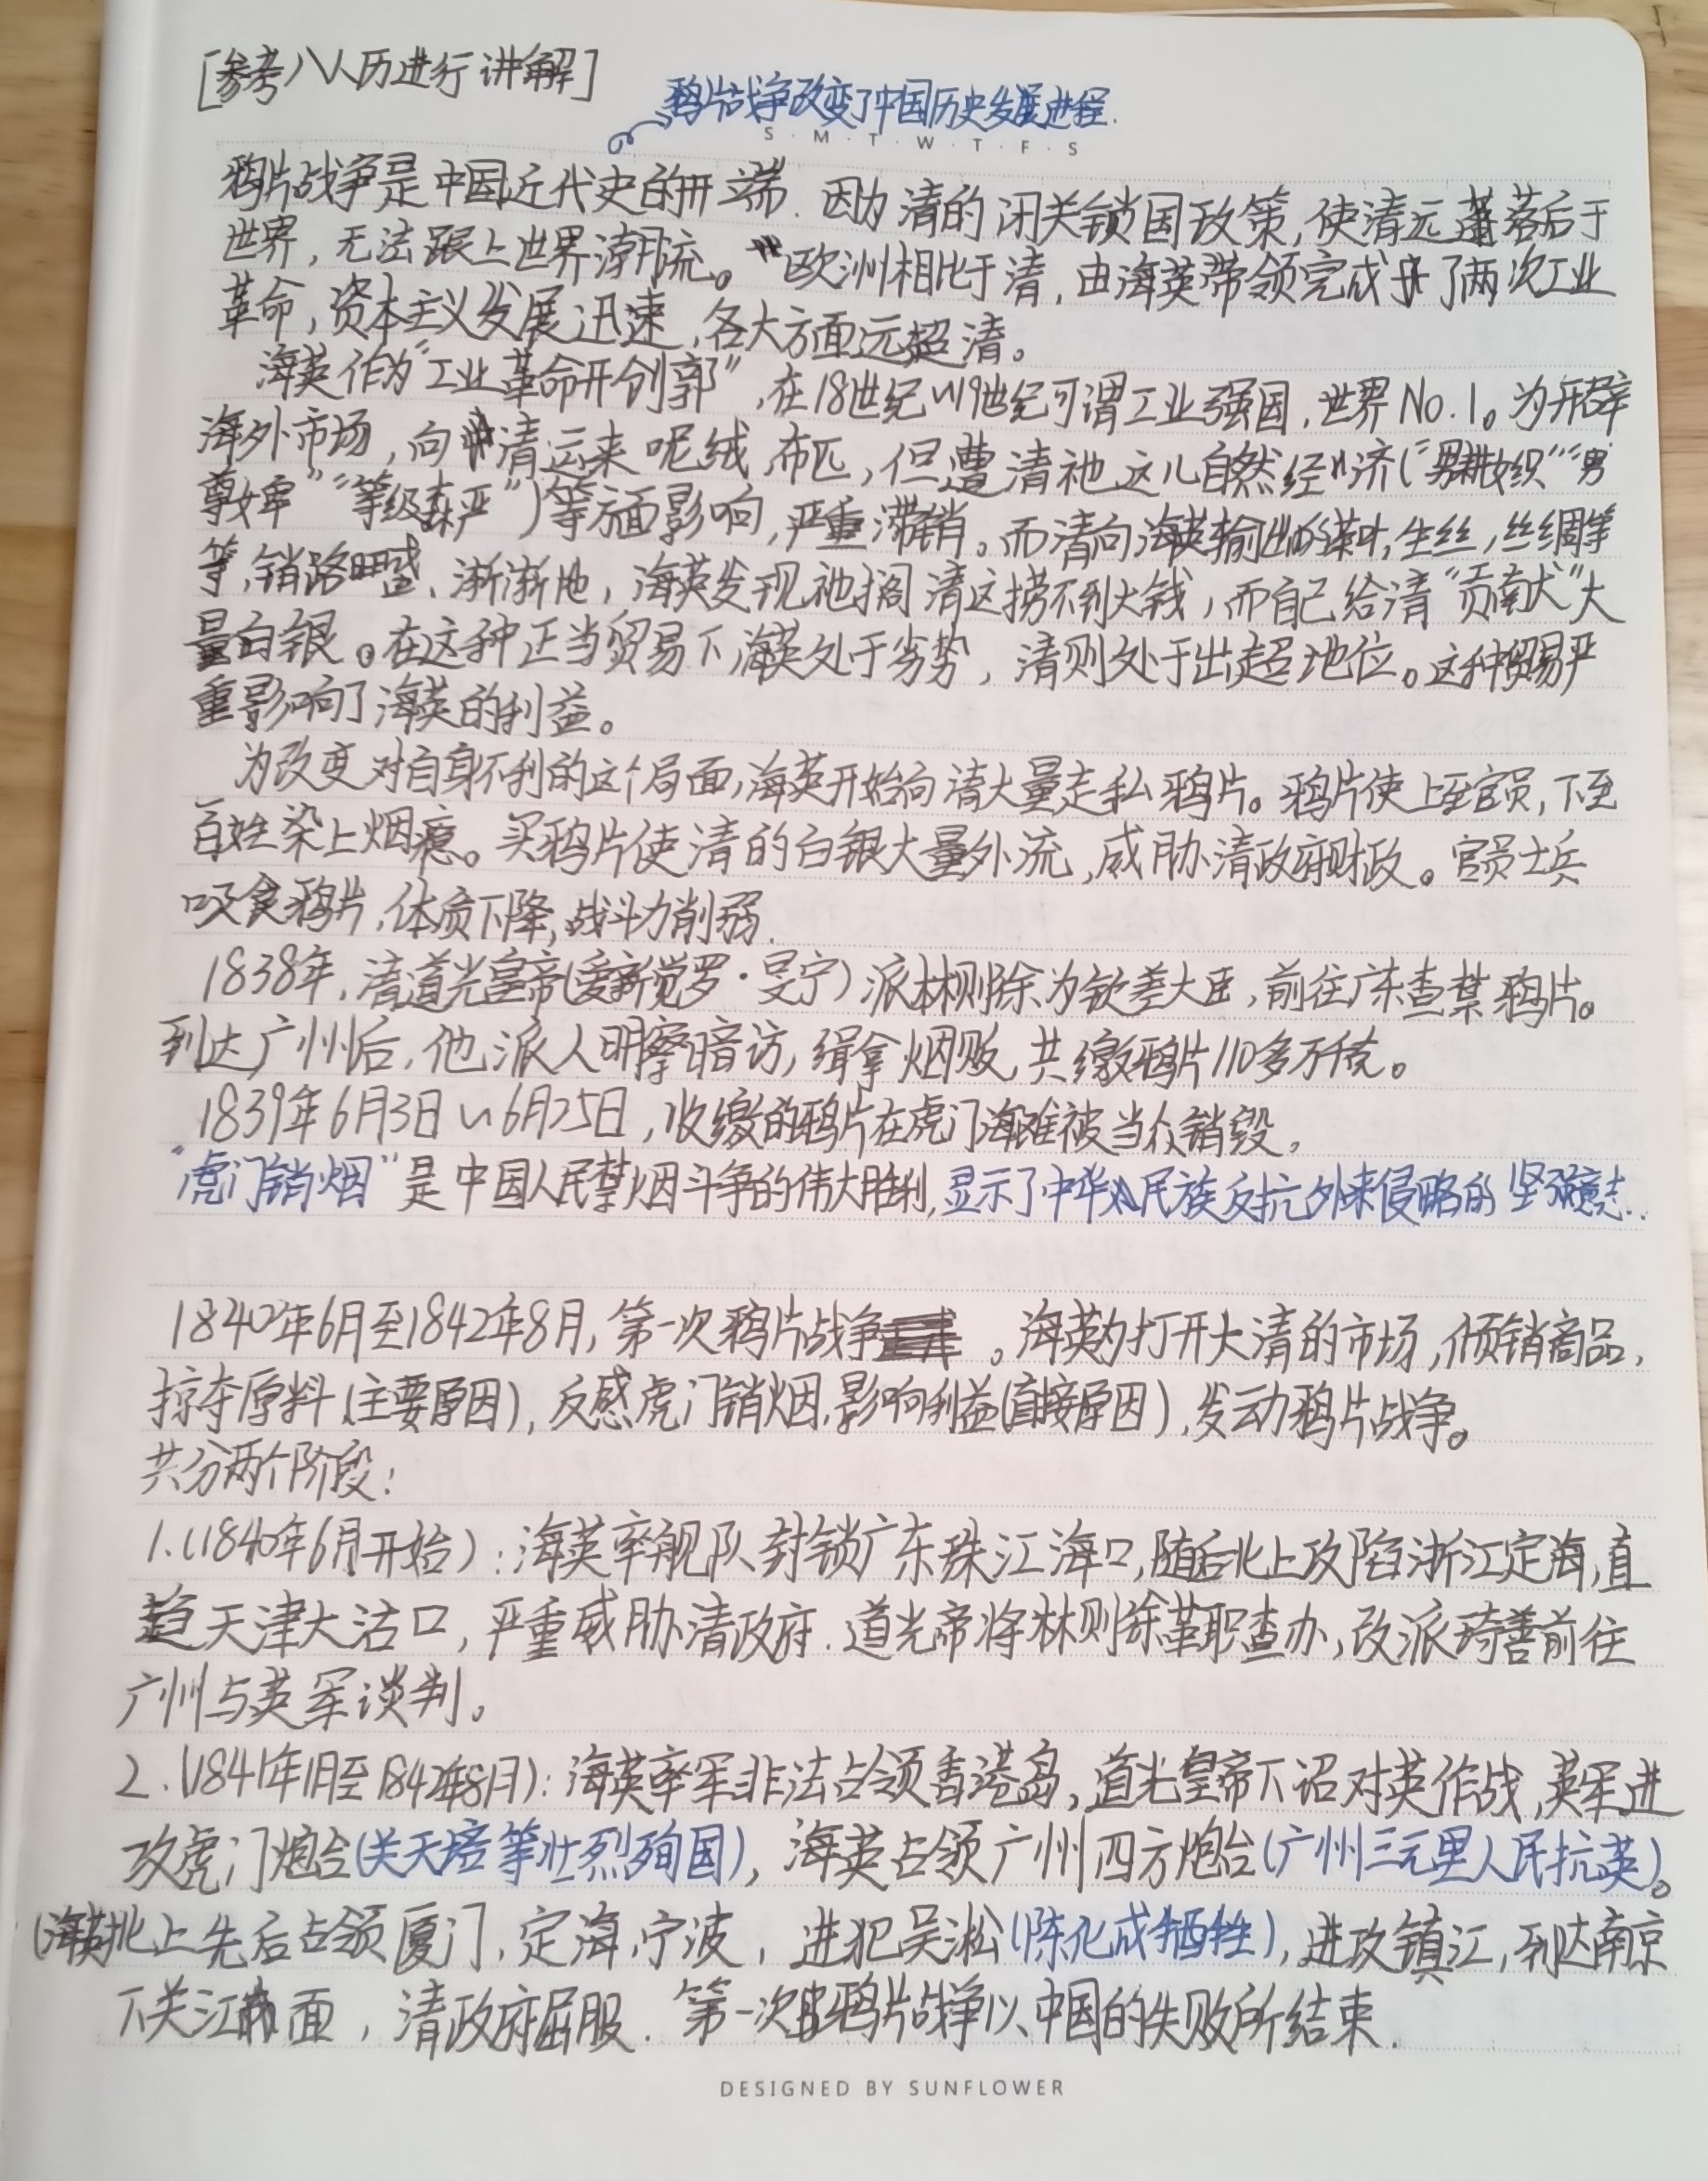 [参考八人历进行讲解]
鸦片战争改变了中国历史发展进程.
S·M·T·W·T·F·S
鸦片战争是中国近代史的开端.因为清的闭关锁国政策,使清远落后于
世界,无法跟上世界潮流。欧洲相比于清,由海英带领完成了两次工业
革命,资本主义发展迅速,各大方面远超清。
海英作为“工业革命开创郭”,在18世纪~19世纪可谓工业强国,世界No.1。为开辟
海外市场,向清运来呢绒,布匹,但遭清祂这儿自然经济(“男耕女织”“男
尊女卑”“等级森严”)等方面影响,严重滞销。而清向海英输出的茶叶,生丝,丝绸等
等,销路旺盛、渐渐地,海英发现祂搁清这捞不到大钱,而自己给清“贡献”大
量白银。在这种正当贸易下,海英处于劣势,清则处于出超地位。这种贸易严
重影响了海英的利益。
为改变对自身不利的这个局面,海英开始向清大量走私鸦片。鸦片使上至官员,下至
百姓染上烟瘾。买鸦片使清的白银大量外流,威胁清政府财政。官员士兵
吸食鸦片,体质下降,战斗力削弱.
1838年,清道光皇帝(爱新觉罗·旻宁)派林则除为钦差大臣,前往广东查禁鸦片。
到达广州后,他派人明察暗访,缉拿烟贩,共缴鸦片110多万千克。
1839年6月3日~6月25日,收缴的鸦片在虎门海滩被当众销毁。
“虎门销烟”是中国人民禁烟斗争的伟大胜利,显示了中华民族反抗外来侵略的坚强意志..
1840年6月至1842年8月,第一次鸦片战争。海英为打开大清的市场,倾销商品,
掠夺原料(主要原因),反感虎门销烟,影响利益(直接原因),发动鸦片战争。
共分两个阶段:
1.(1840年6月开始):海英率舰队封锁广东珠江海口,随后北上攻陷浙江定海,直
趋天津大沽口,严重威胁清政府.道光帝将林则徐革职查办,改派琦善前往
广州与英军谈判。
2.(1841年1月至1842年8月):海英率军非法占领香港岛,道光皇帝下诏对英作战,英军进
攻虎门炮台(关天培等壮烈殉国),海英占领广州四方炮台(广州三元里人民抗英)。
(海英北上先后占领厦门,定海,宁波,进犯吴淞(陈化成牺牲),进攻镇江,到达南京
下关江面,清政府屈服.第一次鸦片战争以中国的失败所结束.
DESIGNED BY SUNFLOWER